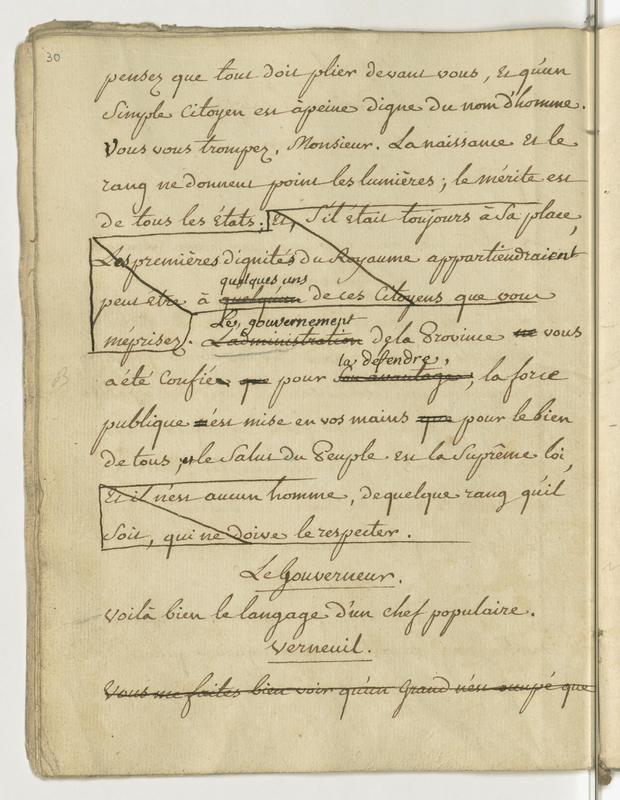 30
pensez que tout doit plier devant vous, et qu'un
simple Citoyen est àpeine digne du nom d'homme.
Vous vous trompez, Monsieur. La naissance et le
rang ne donnent point les lumières ; le mérite est
de tous les États ; Et, s'il était toujours à sa place,
Les premières dignités du Royaume appartiendraient
quelques uns
peut etre à quelqu'un de ces Citoyens que vous
Le gouvernement
méprisez. L'administration de la Province ne vous
la défendre,
a été Confiée que pour son avantage ; la force
publique n'est mise en vos mains que pour le bien
de tous, et le Salut du Peuple est la Suprême loi,
Et il n'est aucun homme, de quelque rang qu'il
soit, qui ne doive le respecter.
Le Gouverneur.
Voilà bien le langage d'un chef populaire.
Verneuil.
Vous me faites bien voir qu'un Grand n'est occupé que